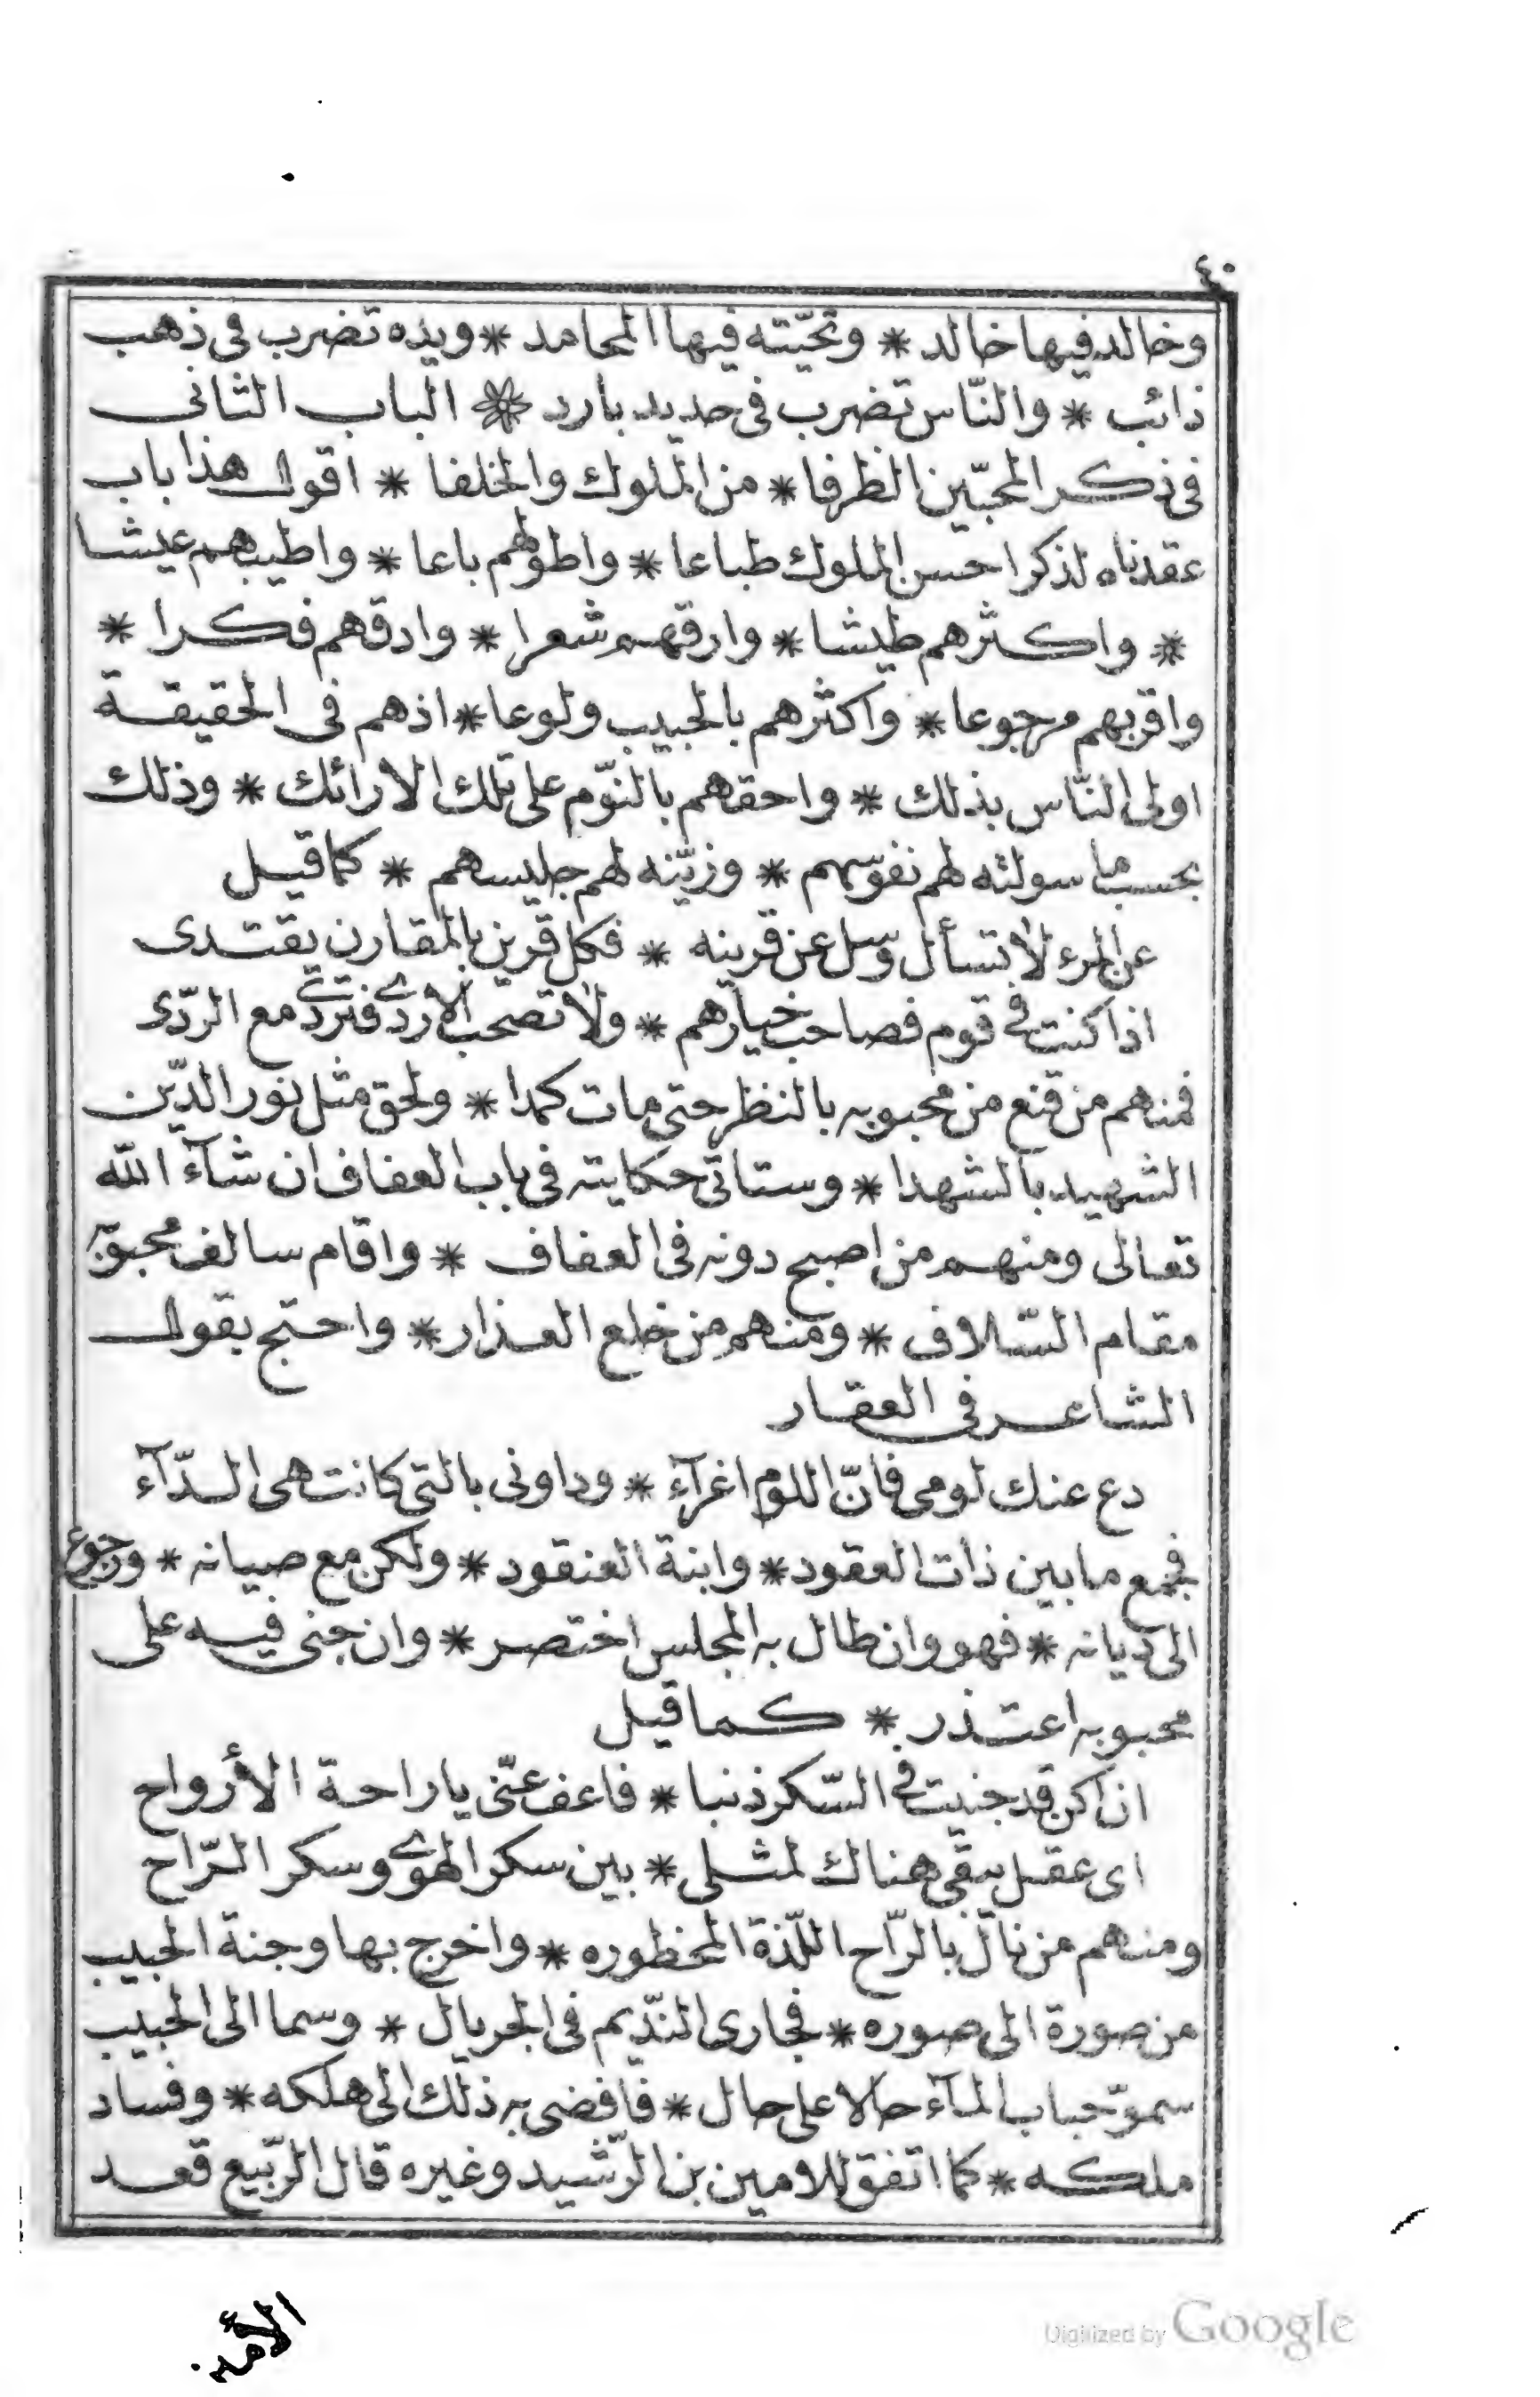 ٤٠
وخالد فيها خالد * وتحيّته فيها المحامد * ويده تضرب فى ذهب
ذائب * والنّاس تضرب فى حديد بارد * الباب الثانى
فى ذكر المحبّين الظرفا * من الملوك والخلفا * اقول هذا باب
عقدناه لذكر احسن الملوك طباعا * واطولهم باعا * واطيبهم عيشا
* واكثرهم طيشا * وارقهم شعرا * وادقهم فكرا *
واقربهم رجوعا * واكثرهم بالحبيب ولوعا * اذهم فى الحقيقة
اولى النّاس بذلك * واحقهم بالنّوم على تلك الارائك * وذلك
بحسب ما سولته لهم نفوسهم * وزيّنه لهم جليسهم * كما قيل
عن المرء لا تسأل وسل عن قرينه * فكل قرين بالمقارن يقتدى
اذا كنت فى قوم فصاحب خيارهم * ولا تصحب الاردى فتردى مع الردّى
فمنهم من قنع من محبوبه بالنظر حتى مات كمدا * ولحق مثل نور الدّين
الشهيد بالشهدا * وستاتى حكايته فى باب العفاف ان شآء الله
تعالى ومنهم من اصبح دونه فى العفاف * واقام سالف محبوبه
مقام السّلاف * ومنهم من خلع العذار * واحتج بقول
الشاعر فى العقار
دع عنك لومى فانّ اللوم اغرآء * وداونى بالتى كانت هى الدّآء
فجمع ما بين ذات العقود * وابنة العنقود * ولكن مع صيانه * ورجوع
الى ديانه * فهو وان طال به المجلس اختصر * وان جنى فيه على
محبوبه اعتذر * كما قيل
ان اكن قد جنيت فى السّكر ذنبا * فاعف عنّى يا راحة الأرواح
اى عقل يبقى هناك لمثلى * بين سكر الهوى وسكر الرّاح
ومنهم من نال بالرّاح اللّذة المحظوره * واخرج بها وجنة الحبيب
من صورة الى صوره * فجارى النّديم فى الجريال * وسما الى الحبيب
سموّ حباب المآء حالا على حال * فافضى به ذلك الى هلكه * وفساد
ملكه * كما اتفق للامين بن الرّشيد وغيره قال الرّبيع قعد
الأمين
Digitized by Google